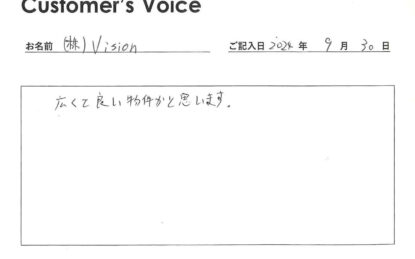 Customer's Voice
お名前 (株)Vision ご記入日 2024 年 9 月 30 日
広くて良い物件かと思います。